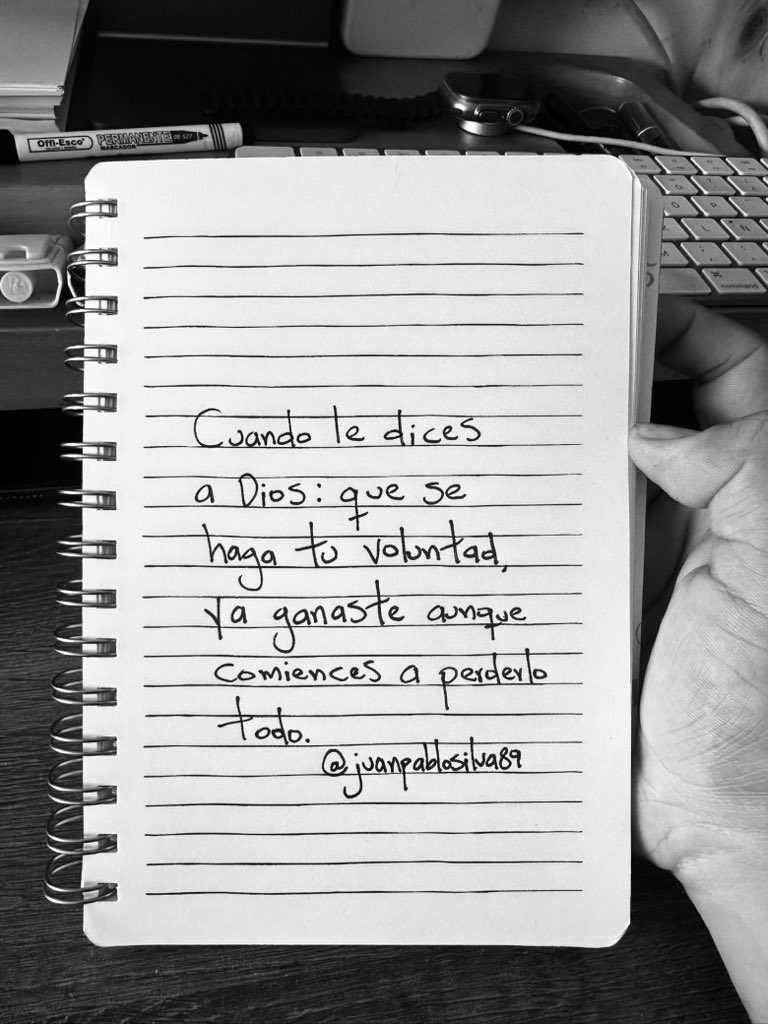 Offi-Esco
PERMANENTE
MARCADOR
OE-527
O
P
L
Ñ
⌘
command
Cuando le dices
a Dios: que se
haga tu voluntad,
ya ganaste aunque
comiences a perderlo
todo.
@juanpablosilva89